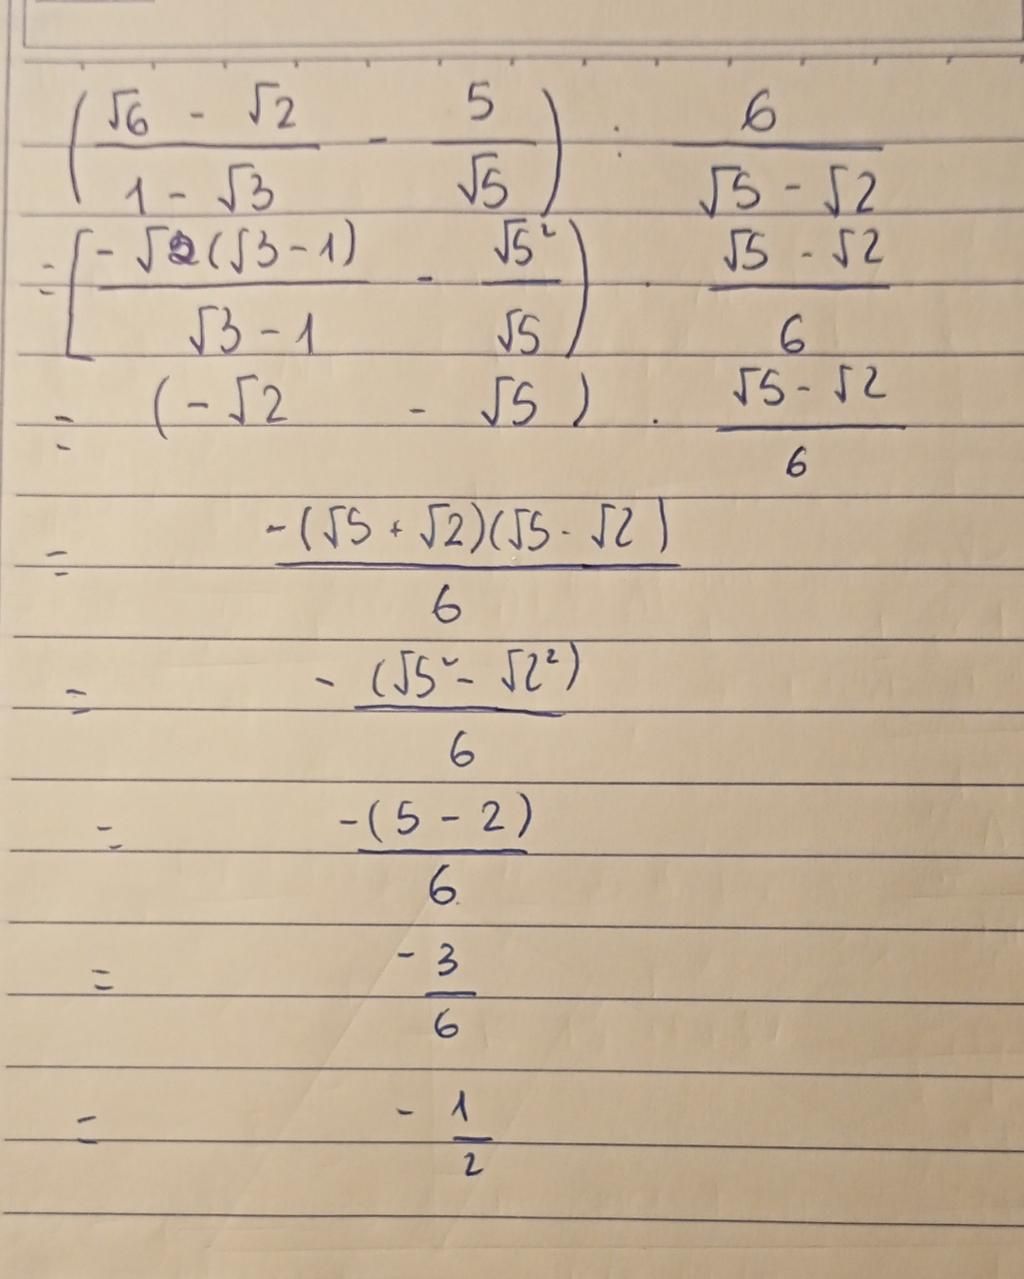 ( (√6 - √2)/(1 - √3) - 5/√5 ) : 6/(√5 - √2)
= [ -√2(√3-1)/(√3-1) - √5²/√5 ) . (√5 - √2)/6
= (-√2 - √5) . (√5 - √2)/6
= -(√5 + √2)(√5 - √2)/6
= - (√5² - √2²)/6
= -(5 - 2)/6
= - 3/6
= - 1/2